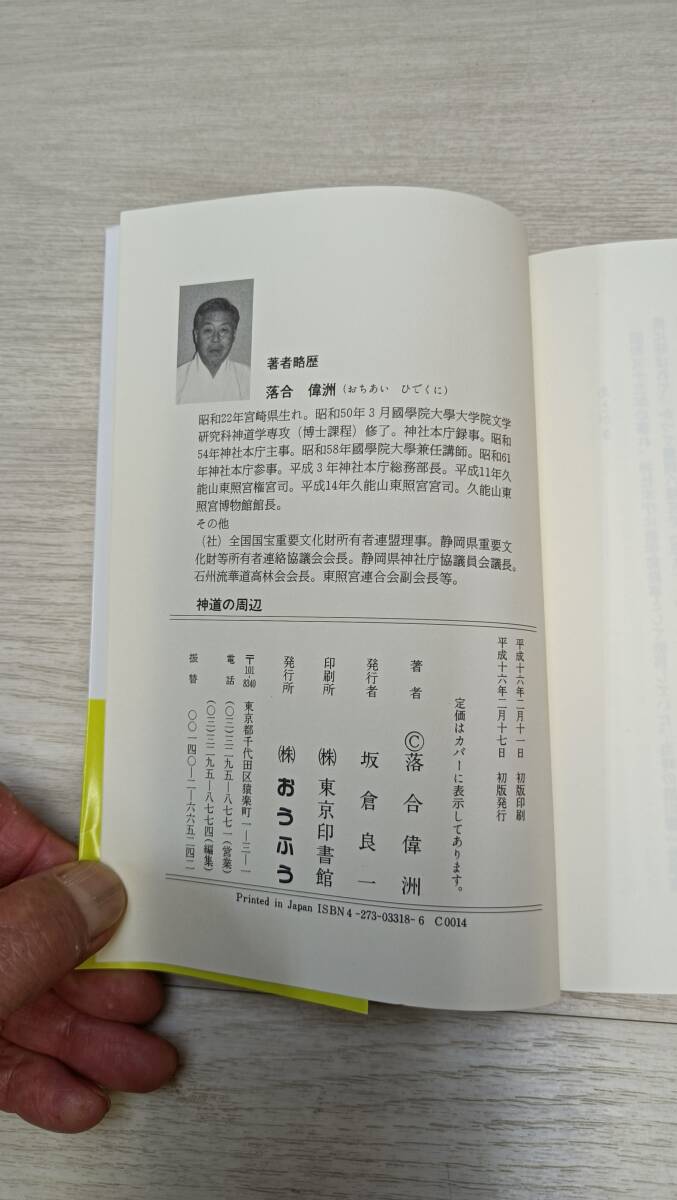 著者略歴
落合 偉洲（おちあい ひでくに）
昭和22年宮崎県生れ。昭和50年３月國學院大學大学院文学
研究科神道学専攻（博士課程）修了。神社本庁録事。昭和
54年神社本庁主事。昭和58年國學院大學兼任講師。昭和61
年神社本庁参事。平成３年神社本庁総務部長。平成11年久
能山東照宮権宮司。平成14年久能山東照宮宮司。久能山東
照宮博物館館長。
その他
（社）全国国宝重要文化財所有者連盟理事。静岡県重要文
化財等所有者連絡協議会会長。静岡県神社庁協議員会議長。
石州流華道高林会会長。東照宮連合会副会長等。
神道の周辺
平成十六年二月十一日 初版印刷
平成十六年二月十七日 初版発行
定価はカバーに表示してあります。
著者 ©落合偉洲
発行者 坂倉良一
印刷所 ㈱東京印書館
発行所 ㈱おうふう
〒101-8340 東京都千代田区猿楽町一―三―一
電話 （〇三）三二九五―八七七一（営業）
（〇三）三二九五―八七七四（編集）
振替 〇〇一四〇―二―六六五二四二
Printed in Japan ISBN4-273-03318-6 C0014